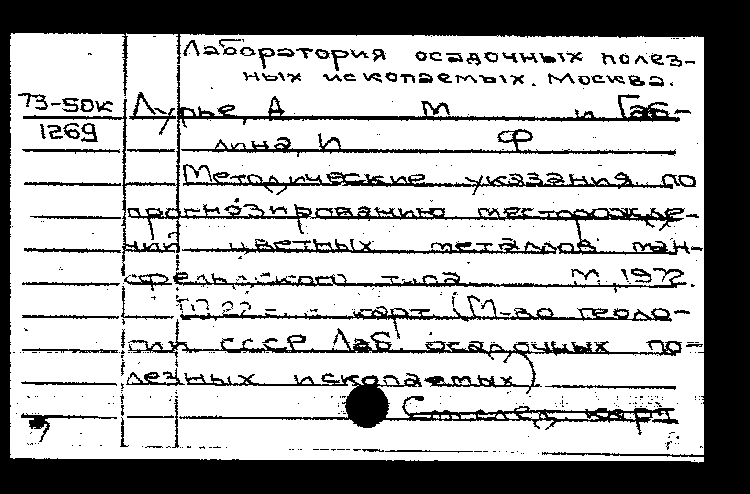 Лаборатория осадочных полез-
ных ископаемых. Москва.
73-50к
1269
Лурье, А М и Габ-
лина, И Ф
Методические указания по
прогнозированию месторожде-
ний цветных металлов ман-
сфельдского типа М, 1972.
карт (М-во геоло-
гии СССР. Лаб. осадочных по-
лезных ископаемых)
См след карт